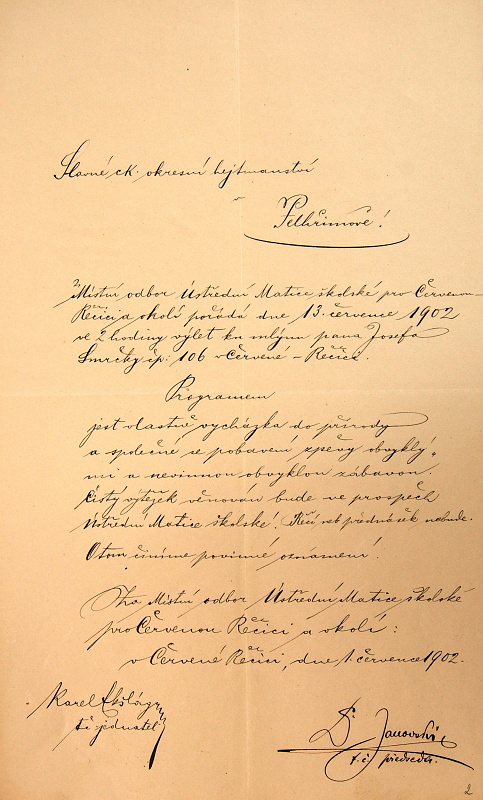 Slavné c.k. okresní hejtmanství
v Pelhřimově!
Místní odbor Ústřední Matice školské pro Červenou
Řečici a okolí pořádá dne 13. července 1902
ve 2 hodiny výlet ku mlýnu pana Josefa
Smrčky čp. 106 v Červené-Řečici.
Programem
jest vlastně vycházka do přírody
a společné se pobavení zpěvy obvyklý-
mi a nevinnou obvyklou zábavou.
Čistý výtěžek věnován bude ve prospěch
Ústřední Matice školské! Řečí neb přednášek nebude.
O tom činíme povinné oznámení!
Za Místní odbor Ústřední Matice školské
pro Červenou Řečici a okolí:
v Červené Řečici, dne 1. července 1902.
Karel
t.č. jednatel
Dr. Janovský
t.č. předseda.
2